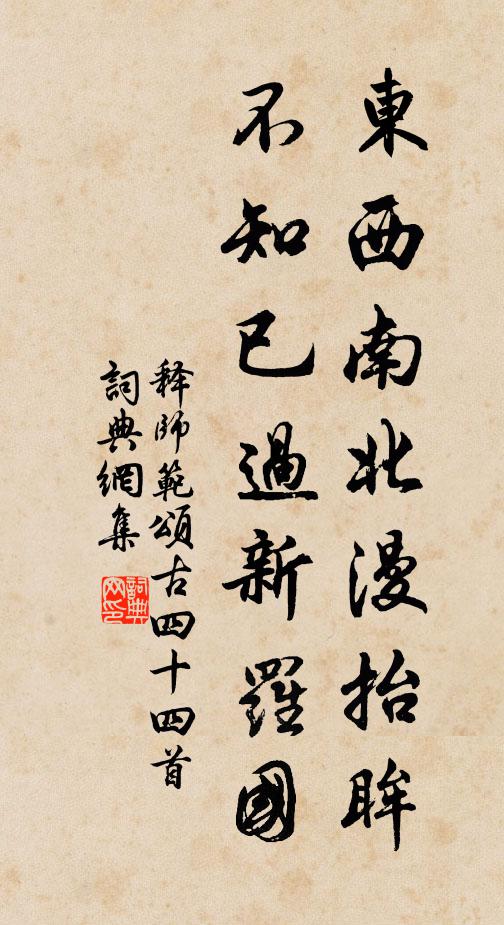 東西南北漫抬眸
不知已過新羅國
释師範頌古四十四首
詞典網集
詞典
网印